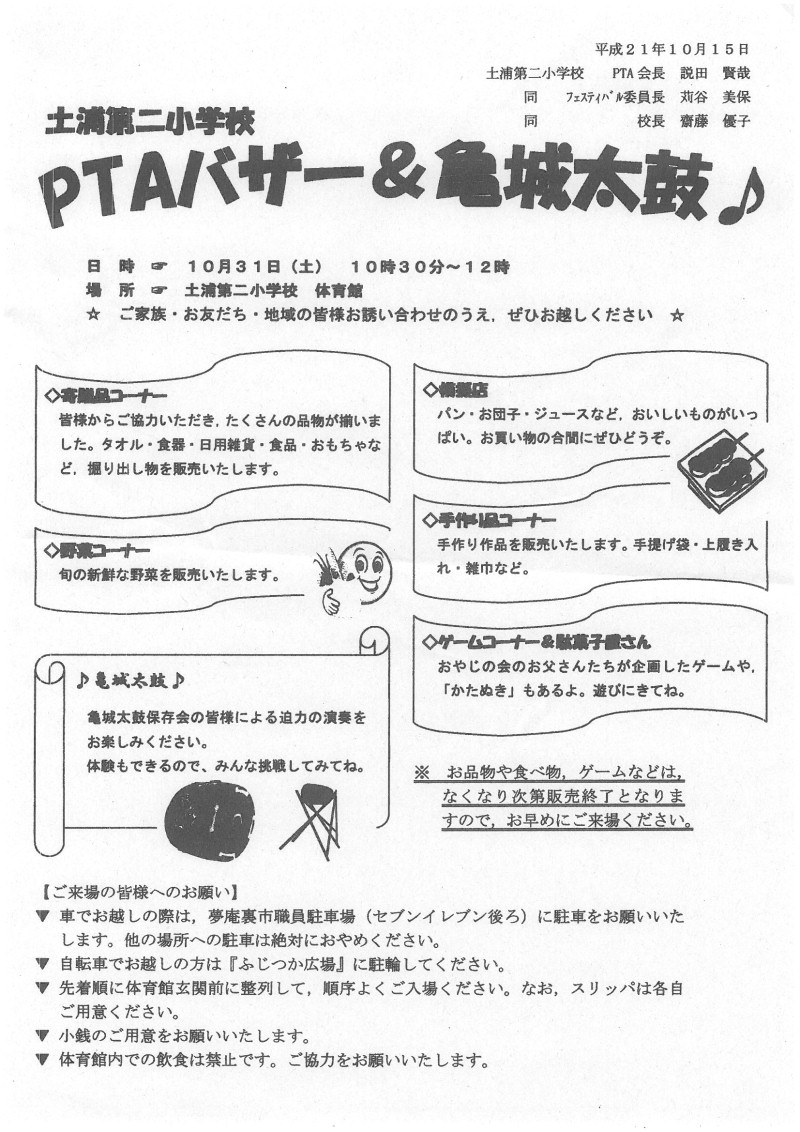 平成21年10月15日
土浦第二小学校　PTA会長　説田　賢哉
同　ﾌｪｽﾃｨﾊﾞﾙ委員長　苅谷　美保
同　校長　齋藤　優子
土浦第二小学校
PTAバザー＆亀城太鼓♪
日　時　☞　10月31日（土）　10時30分～12時
場　所　☞　土浦第二小学校　体育館
☆　ご家族・お友だち・地域の皆様お誘い合わせのうえ，ぜひお越しください　☆
◇寄贈品コーナー
皆様からご協力いただき，たくさんの品物が揃いま
した。タオル・食器・日用雑貨・食品・おもちゃな
ど，掘り出し物を販売いたします。
◇野菜コーナー
旬の新鮮な野菜を販売いたします。
♪亀城太鼓♪
亀城太鼓保存会の皆様による迫力の演奏を
お楽しみください。
体験もできるので、みんな挑戦してみてね。
◇模擬店
パン・お団子・ジュースなど，おいしいものがいっ
ぱい。お買い物の合間にぜひどうぞ。
◇手作り品コーナー
手作り作品を販売いたします。手提げ袋・上履き入
れ・雑巾など。
◇ゲームコーナー＆駄菓子屋さん
おやじの会のお父さんたちが企画したゲームや，
「かたぬき」もあるよ。遊びにきてね。
※　お品物や食べ物，ゲームなどは，
なくなり次第販売終了となりま
すので，お早めにご来場ください。
【ご来場の皆様へのお願い】
▼ 車でお越しの際は，夢庵裏市職員駐車場（セブンイレブン後ろ）に駐車をお願いいた
します。他の場所への駐車は絶対におやめください。
▼ 自転車でお越しの方は『ふじつか広場』に駐輪してください。
▼ 先着順に体育館玄関前に整列して，順序よくご入場ください。なお，スリッパは各自
ご用意ください。
▼ 小銭のご用意をお願いいたします。
▼ 体育館内での飲食は禁止です。ご協力をお願いいたします。